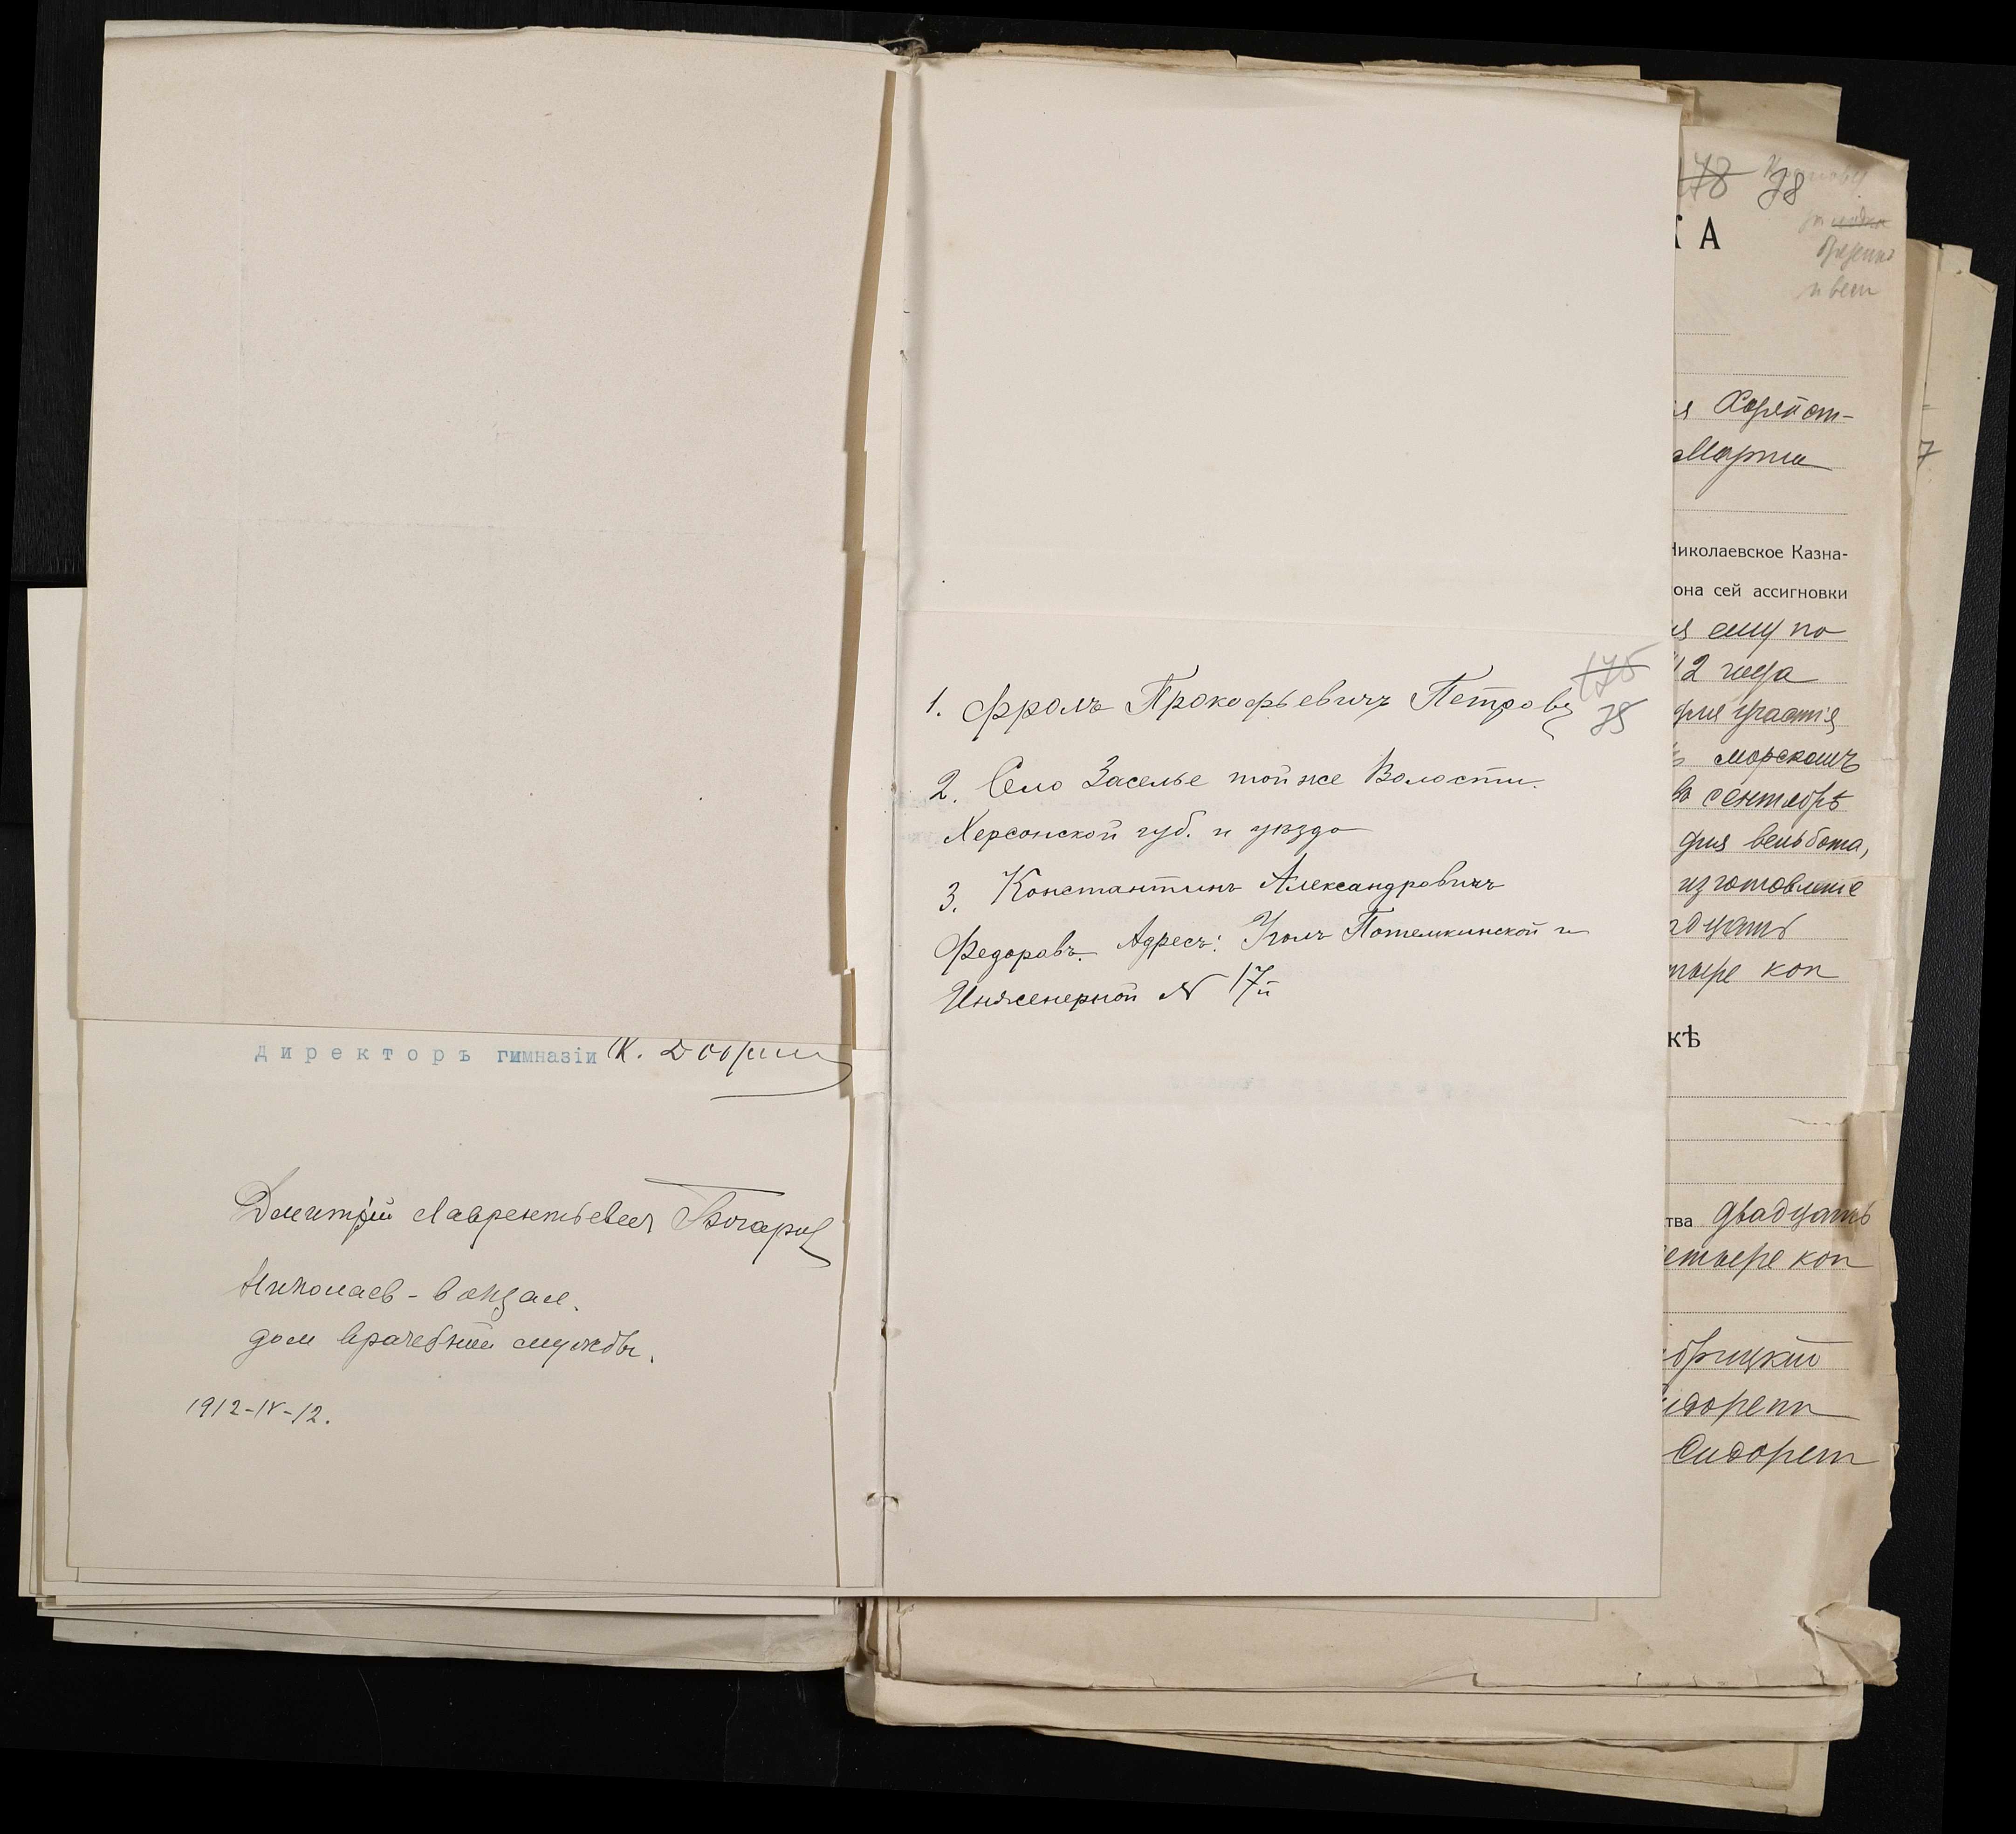 Директоръ гимназіи К.
Дмитрій Лаврентьевич
Николаев - вокзал.
дом врачебной службы.
1912-IV-12.
175
75
1. Фролъ Прокофьевичъ Петровъ
2. Село Заселье той же Волости.
Херсонской губ. и уѣзда
3. Константинъ Александровичъ
Федоровъ. Адресъ: Уголъ Потемкинской и
Инженерной № 17й
178 78
КА
Харитон-
Марта
7
Николаевское Казна-
она сей ассигновки
ему по
12 года
для участія
морскомъ
въ сентябрѣ
для вельбота,
изготовленіе
дцать
тыре коп
кѣ
тва двадцать
етыре коп